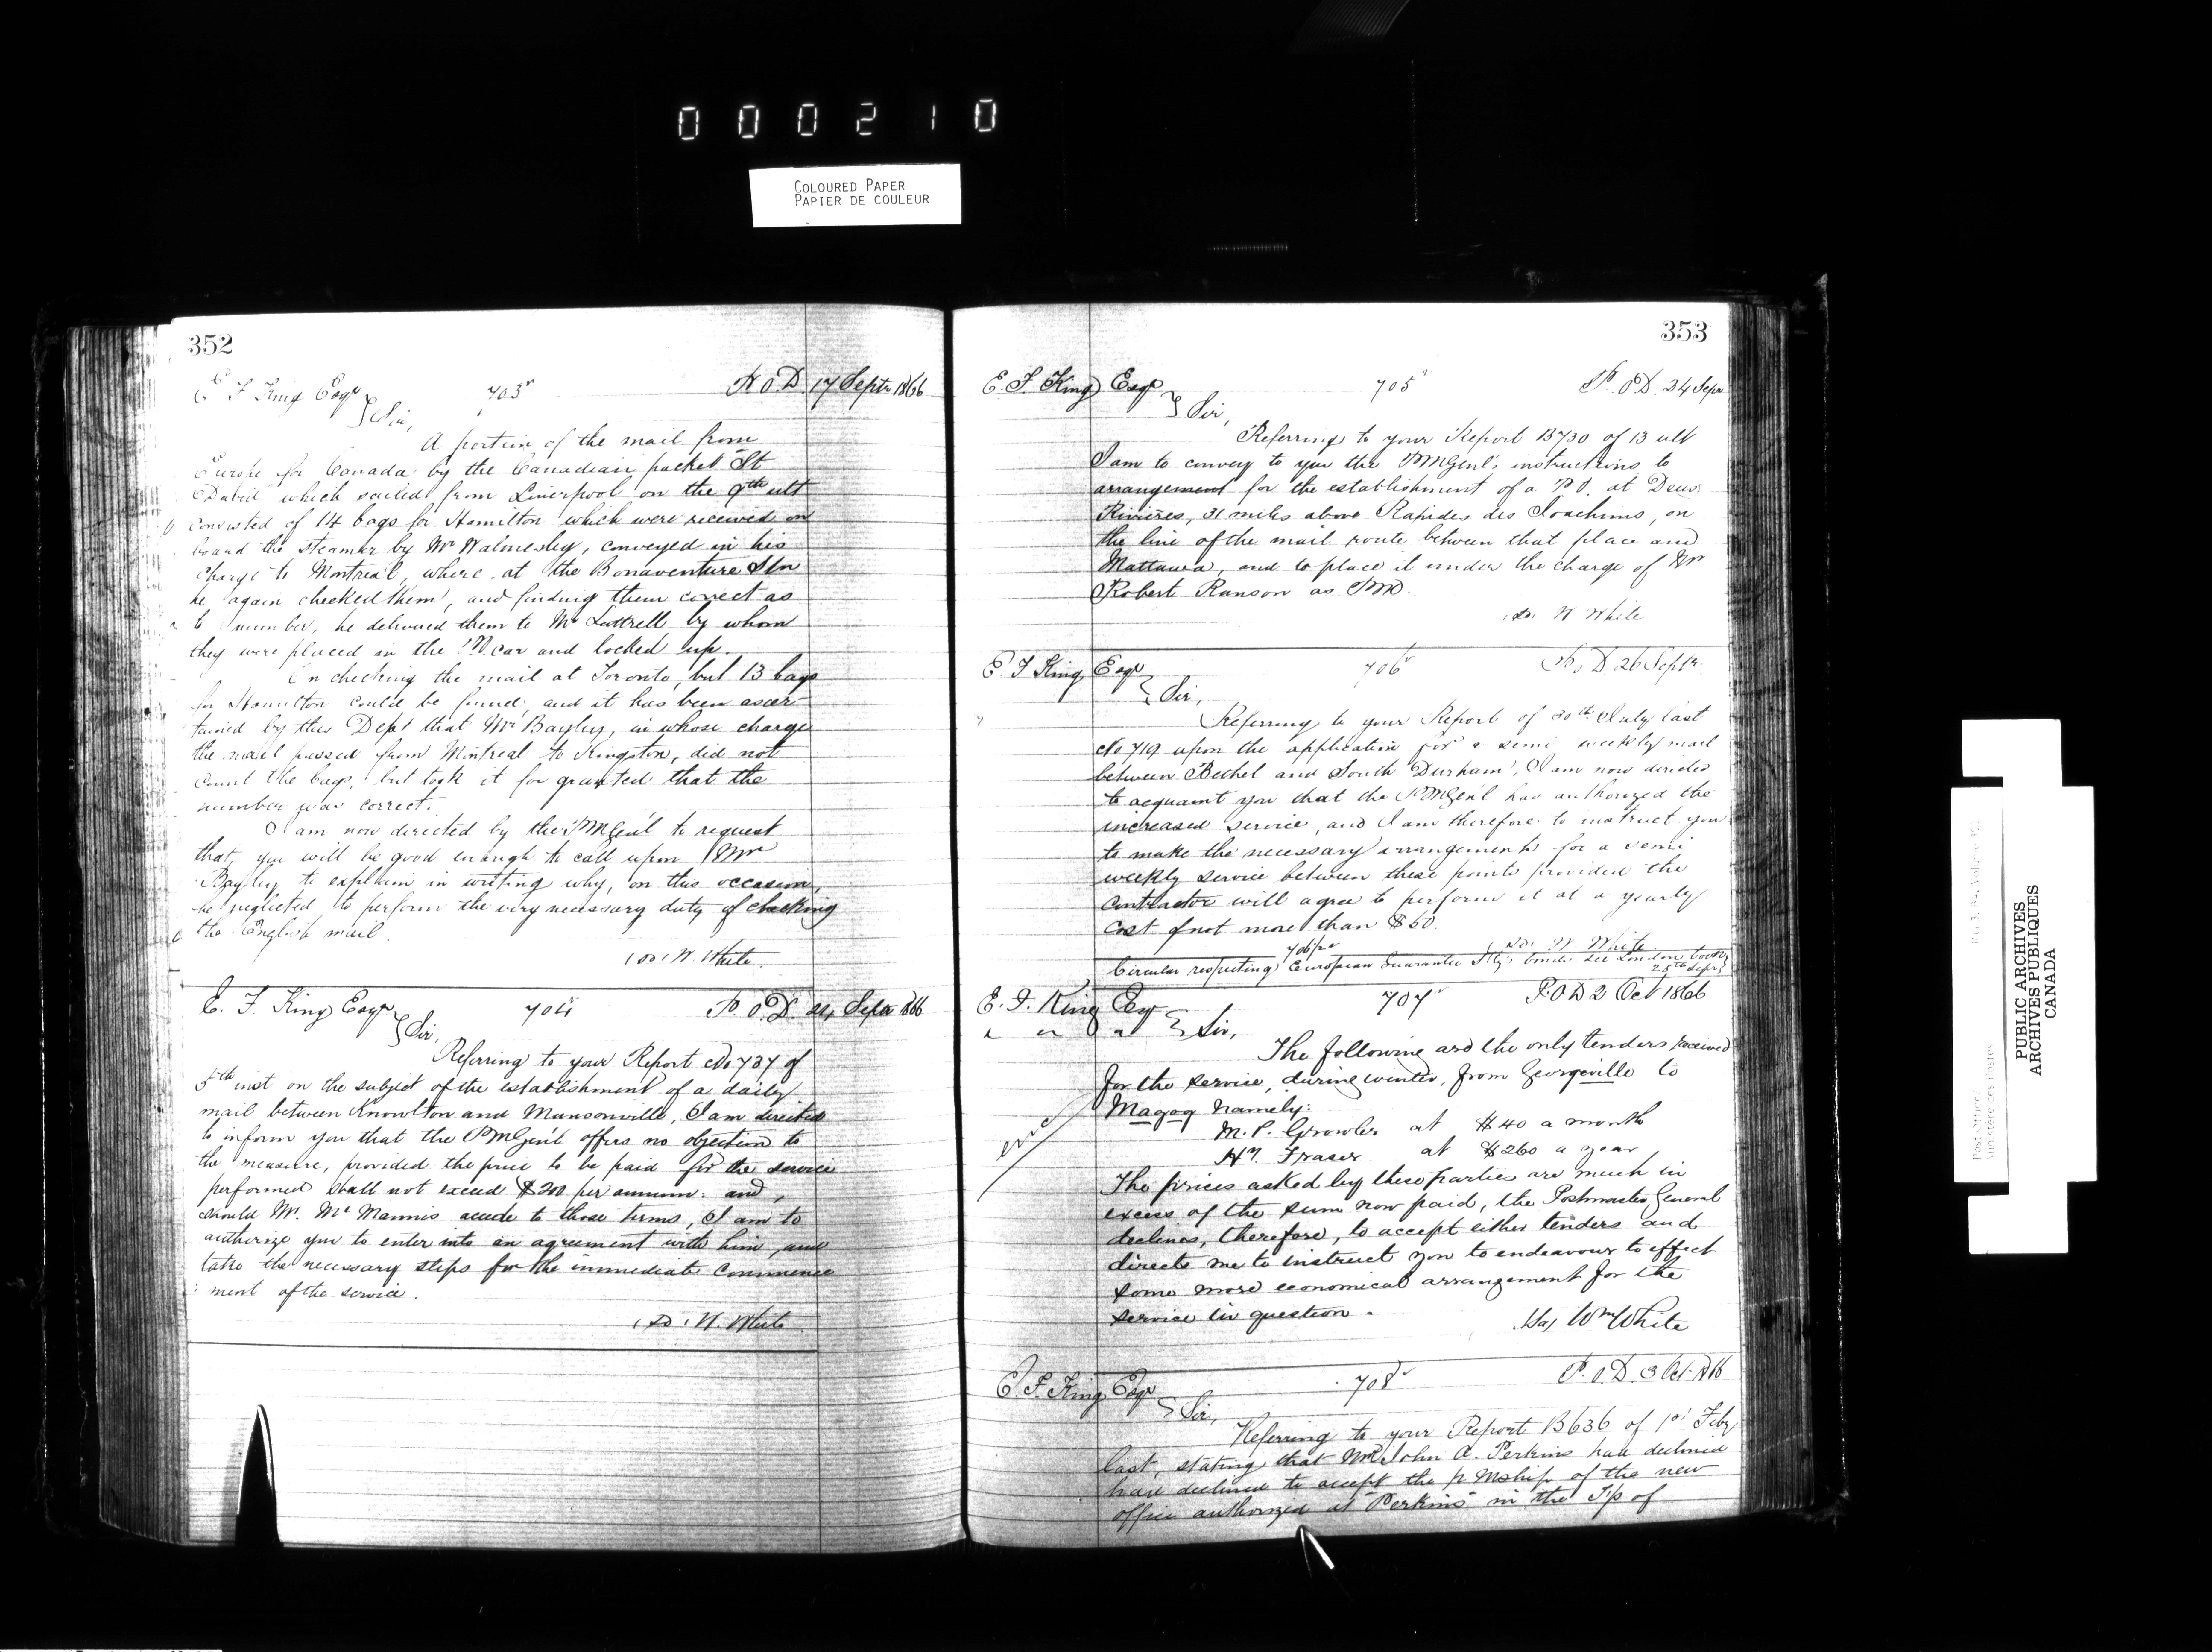 000210
COLOURED PAPER
PAPIER DE COULEUR
352
E F King Esqr 703 P.O.D. 17 Septr 1866
Sir,
A portion of the mail from
Europe for Canada by the Canadian packet "St
David" which sailed from Liverpool on the 9th ult
consisted of 14 bags for Hamilton which were received on
board the steamer by Mr Walmesley, conveyed in his
charge to Montreal, where, at the Bonaventure Stn
he again checked them, and finding them correct as
to number, he delivered them to Mr Luttrell by whom
they were placed in the P.O. car and locked up.
On checking the mail at Toronto, but 13 bags
for Hamilton could be found, and it has been ascer-
tained by this Dept that Mr Bayley, in whose charge
the mail passed from Montreal to Kingston, did not
count the bags, but took it for granted that the
number was correct.
I am now directed by the PMGen'l to request
that you will be good enough to call upon Mr
Bayley to explain in writing why, on this occasion,
he neglected to perform the very necessary duty of checking
the English mail.
(sd) W. White
E. F. King Esqr 704 P.O.D. 24 Septr 1866
Sir,
Referring to your Report No 737 of
5th inst on the subject of the establishment of a daily
mail between Knowlton and Mansonville, I am directed
to inform you that the PMGen'l offers no objection to
the measure, provided the price to be paid for the service
performed shall not exceed $200 per annum: and,
should Mr. McMannis accede to those terms, I am to
authorize you to enter into an agreement with him, and
take the necessary steps for the immediate commence
ment of the service.
(sd) W. White
353
E. F. King Esqr 705 P.O.D. 24 Sepr
Sir,
Referring to your Report B730 of 13 ult
I am to convey to you the PMGenl's instructions to
arrangement for the establishment of a P.O. at Deux
Rivières, 31 miles above Rapides des Joachims, on
the line of the mail route between that place and
Mattawa, and to place it under the charge of Mr
Robert Ranson as PM.
(sd) W White
E F King Esqr 706 P.O.D 26 Septr
Sir,
Referring to your Report of 30th July last
No 719 upon the application for a semi weekly mail
between Bethel and South Durham, I am now directed
to acquaint you that the PMGen'l has authorized the
increased service, and I am therefore to instruct you
to make the necessary arrangements for a semi
weekly service between these points provided the
contractor will agree to perform it at a yearly
cost of not more than $60.
(sd) W. White
706/2
Circular respecting European Guarantee Sty bonds. see London book
28th Septr
E. F. King Esq 707 P.O.D 2 Oct 1866
Sir,
The following are the only tenders received
for the service, during winter, from Georgeville to
Magog namely:
M. P. Growler at $40 a month
Hy. Fraser at $260 a year
The prices asked by these parties are much in
excess of the sum now paid, the Postmaster General
declines, therefore, to accept either tenders and
directs me to instruct you to endeavour to effect
some more economical arrangement for the
service in question.
(sd) Wm White
E. F. King Esqr 708 P.O.D. 3 Oct 1866
Sir,
Referring to your Report B636 of 1st Feby
last, stating that Mr John A. Perkins had declined
have declined to accept the p Mship of the new
office authorized at "Perkins" in the T'p of
PUBLIC ARCHIVES
ARCHIVES PUBLIQUES
CANADA